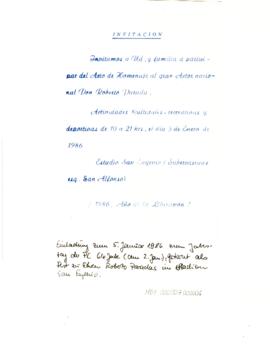 INVITACION
Invitamos a Ud. y familia a partici-
par del Acto de Homenaje al gran Actor nacio-
nal Don Roberto Parada.
Actividades Culturales-recreativas y
deportivas de 10 a 21 hrs. el día 5 de Enero de
1986
Estadio San Eugenio (Subterráneo
esq. San Alfonso)
¡ 1986, Año de la Liberación !
Einladung zum 5. Januar 1986 zum Jahres-
tag der PC 64 Jahre (am 2. Jan), getarnt als
Fest zu Ehren Roberto Paradas im Stadion
San Eugenio.